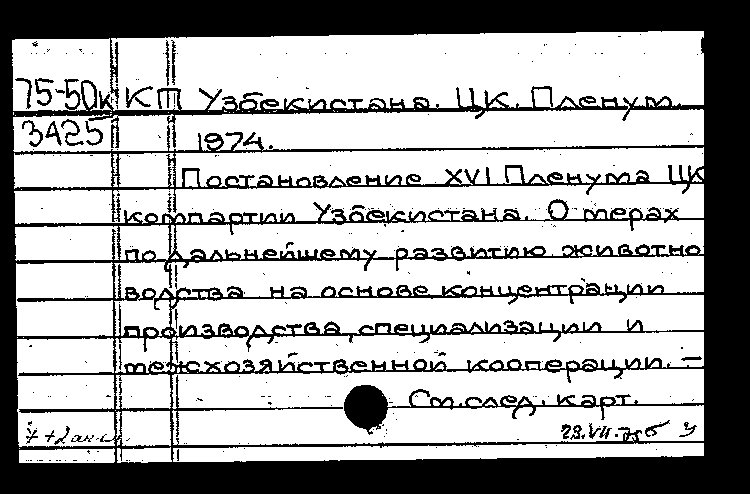 75-50к КП Узбекистана. ЦК. Пленум.
3425 1974.
Постановление XVI Пленума ЦК
компартии Узбекистана. О мерах
по дальнейшему развитию животно
водства на основе концентрации
производства, специализации и
межхозяйственной кооперации. –
См. след. карт.
23.VII.75 У